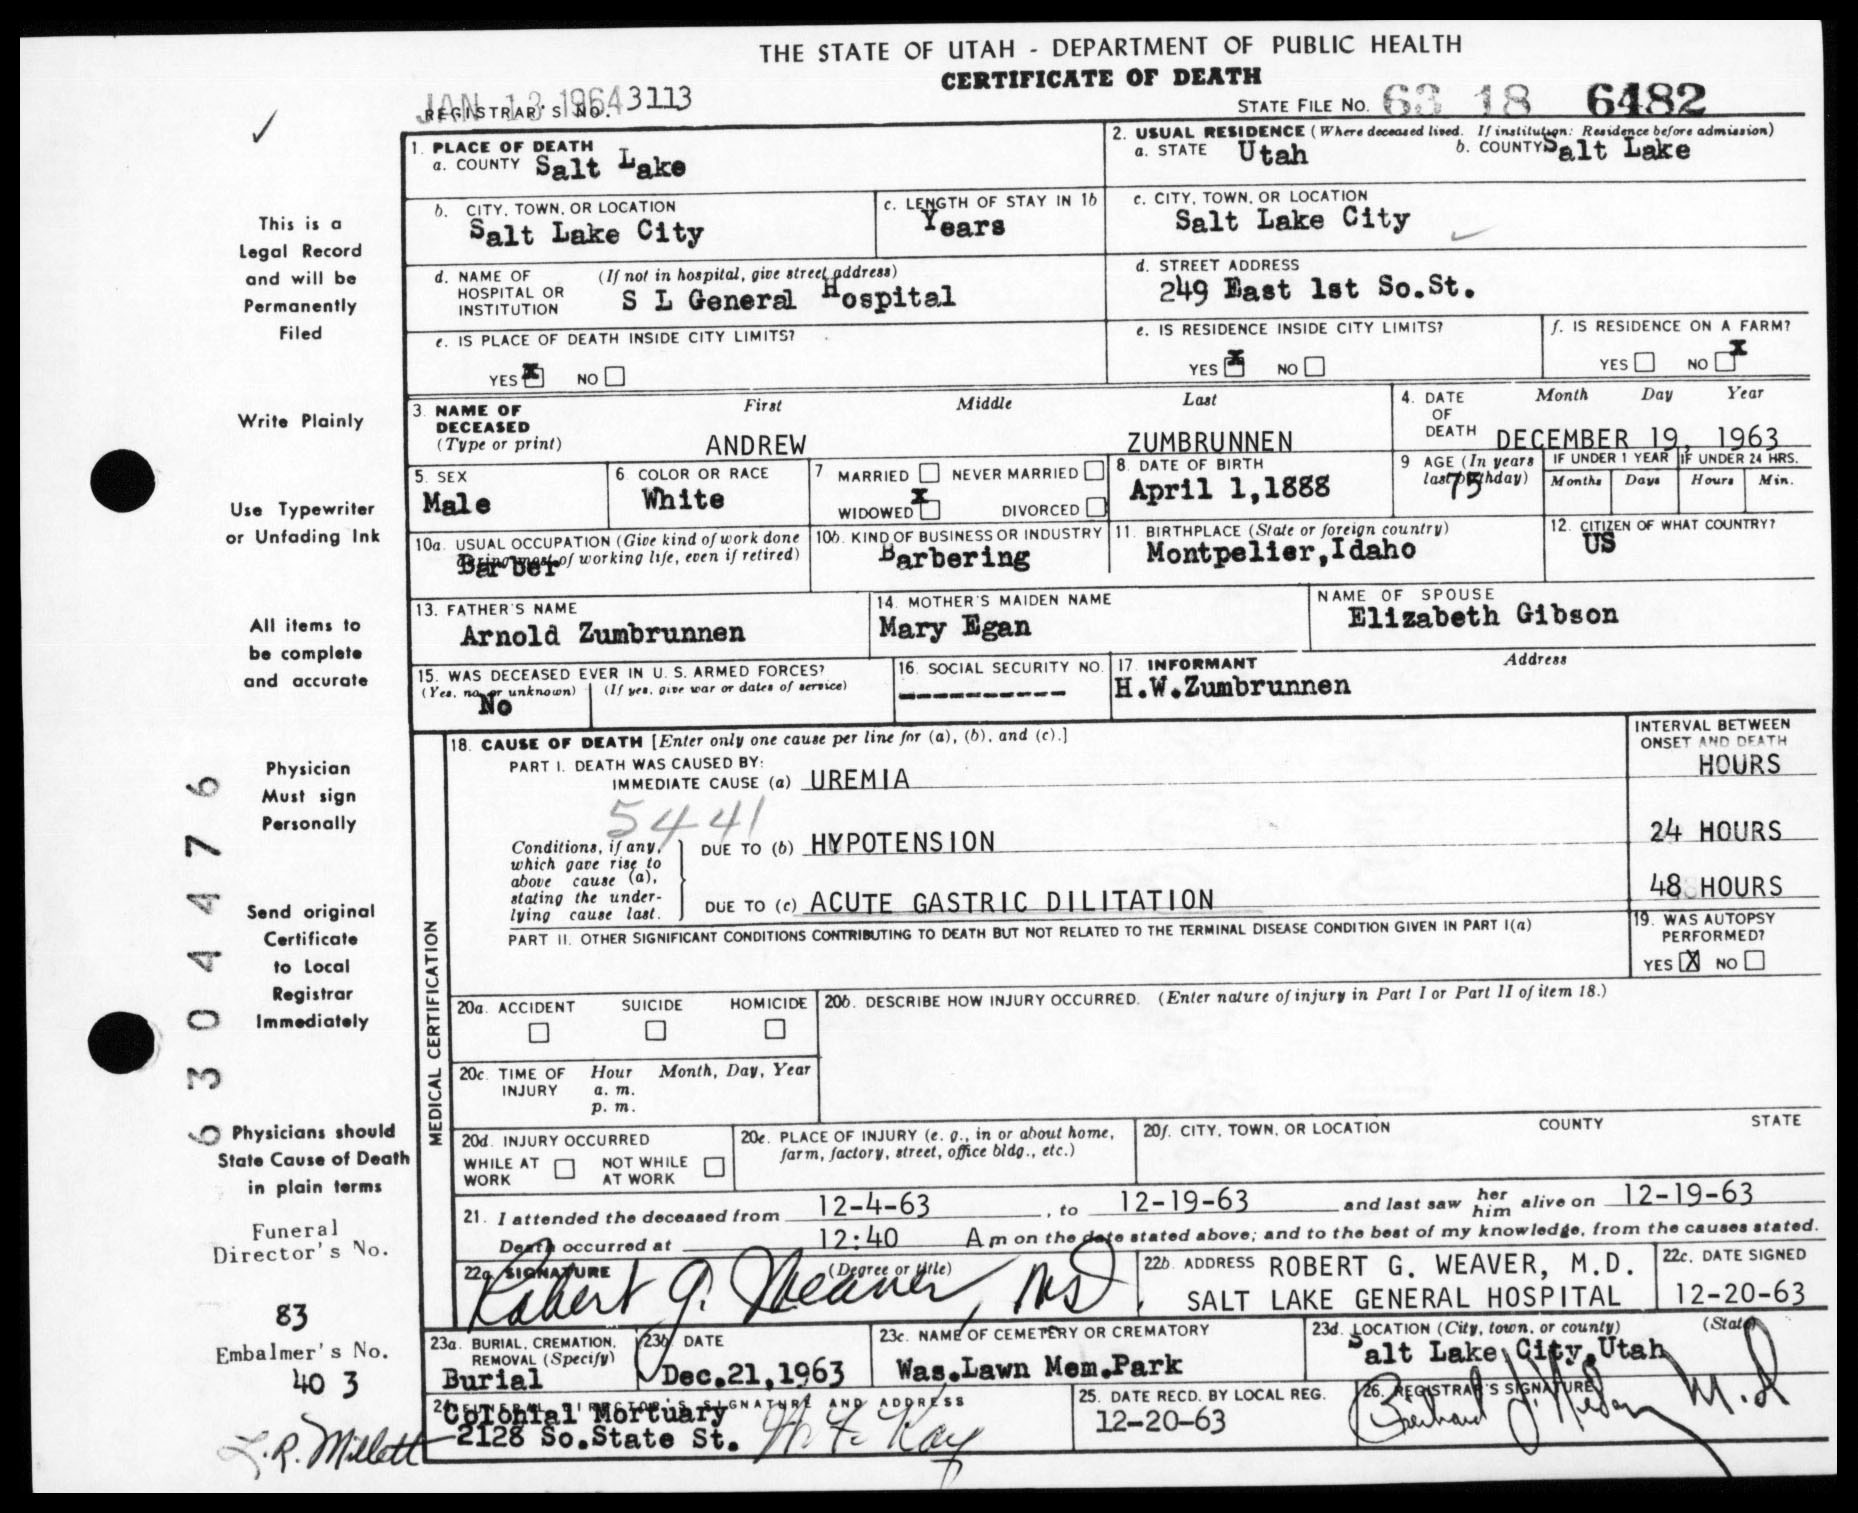 THE STATE OF UTAH - DEPARTMENT OF PUBLIC HEALTH
CERTIFICATE OF DEATH
JAN 13 1964
REGISTRAR'S NO. 3113
STATE FILE NO. 63 18 6482
✓
1. PLACE OF DEATH
a. COUNTY Salt Lake
2. USUAL RESIDENCE (Where deceased lived. If institution: Residence before admission)
a. STATE Utah b. COUNTY Salt Lake
b. CITY, TOWN, OR LOCATION
Salt Lake City
c. LENGTH OF STAY IN 1b
Years
c. CITY, TOWN, OR LOCATION
Salt Lake City
d. NAME OF HOSPITAL OR INSTITUTION (If not in hospital, give street address)
S L General Hospital
d. STREET ADDRESS
249 East 1st So.St.
e. IS PLACE OF DEATH INSIDE CITY LIMITS?
YES X NO
e. IS RESIDENCE INSIDE CITY LIMITS?
YES X NO
f. IS RESIDENCE ON A FARM?
YES NO X
3. NAME OF DECEASED (Type or print)
First Middle Last
ANDREW ZUMBRUNNEN
4. DATE OF DEATH Month Day Year
DECEMBER 19, 1963
5. SEX
Male
6. COLOR OR RACE
White
7 MARRIED NEVER MARRIED
WIDOWED X DIVORCED
8. DATE OF BIRTH
April 1,1888
9 AGE (In years last birthday)
75
IF UNDER 1 YEAR IF UNDER 24 HRS.
Months Days Hours Min.
10a. USUAL OCCUPATION (Give kind of work done during most of working life, even if retired)
Barber
10b. KIND OF BUSINESS OR INDUSTRY
Barbering
11. BIRTHPLACE (State or foreign country)
Montpelier,Idaho
12. CITIZEN OF WHAT COUNTRY?
US
13. FATHER'S NAME
Arnold Zumbrunnen
14. MOTHER'S MAIDEN NAME
Mary Egan
NAME OF SPOUSE
Elizabeth Gibson
15. WAS DECEASED EVER IN U. S. ARMED FORCES?
(Yes, no, or unknown) (If yes, give war or dates of service)
No
16. SOCIAL SECURITY NO.
-----------
17. INFORMANT Address
H.W.Zumbrunnen
MEDICAL CERTIFICATION
18. CAUSE OF DEATH [Enter only one cause per line for (a), (b), and (c).]
INTERVAL BETWEEN ONSET AND DEATH
PART I. DEATH WAS CAUSED BY:
IMMEDIATE CAUSE (a) UREMIA HOURS
5441
Conditions, if any, which gave rise to above cause (a), stating the underlying cause last.
DUE TO (b) HYPOTENSION 24 HOURS
DUE TO (c) ACUTE GASTRIC DILITATION 48 HOURS
PART II. OTHER SIGNIFICANT CONDITIONS CONTRIBUTING TO DEATH BUT NOT RELATED TO THE TERMINAL DISEASE CONDITION GIVEN IN PART I(a)
19. WAS AUTOPSY PERFORMED?
YES X NO
20a. ACCIDENT SUICIDE HOMICIDE
20b. DESCRIBE HOW INJURY OCCURRED. (Enter nature of injury in Part I or Part II of item 18.)
20c. TIME OF INJURY Hour Month, Day, Year
a. m.
p. m.
20d. INJURY OCCURRED
WHILE AT WORK NOT WHILE AT WORK
20e. PLACE OF INJURY (e. g., in or about home, farm, factory, street, office bldg., etc.)
20f. CITY, TOWN, OR LOCATION COUNTY STATE
21. I attended the deceased from 12-4-63, to 12-19-63 and last saw her him alive on 12-19-63
Death occurred at 12:40 A m on the date stated above; and to the best of my knowledge, from the causes stated.
22a. SIGNATURE (Degree or title)
Robert G. Weaver, MD
22b. ADDRESS ROBERT G. WEAVER, M.D.
SALT LAKE GENERAL HOSPITAL
22c. DATE SIGNED
12-20-63
23a. BURIAL, CREMATION, REMOVAL (Specify)
Burial
23b. DATE
Dec.21,1963
23c. NAME OF CEMETERY OR CREMATORY
Was.Lawn Mem.Park
23d. LOCATION (City, town, or county) (State)
Salt Lake City,Utah
24. FUNERAL DIRECTOR'S SIGNATURE AND ADDRESS
Colonial Mortuary
2128 So.State St.
25. DATE RECD. BY LOCAL REG.
12-20-63
26. REGISTRAR'S SIGNATURE
M.D
This is a
Legal Record
and will be
Permanently
Filed
Write Plainly
Use Typewriter
or Unfading Ink
All items to
be complete
and accurate
Physician
Must sign
Personally
Send original
Certificate
to Local
Registrar
Immediately
Physicians should
State Cause of Death
in plain terms
Funeral
Director's No.
83
Embalmer's No.
403
L.R. Millett
6304476